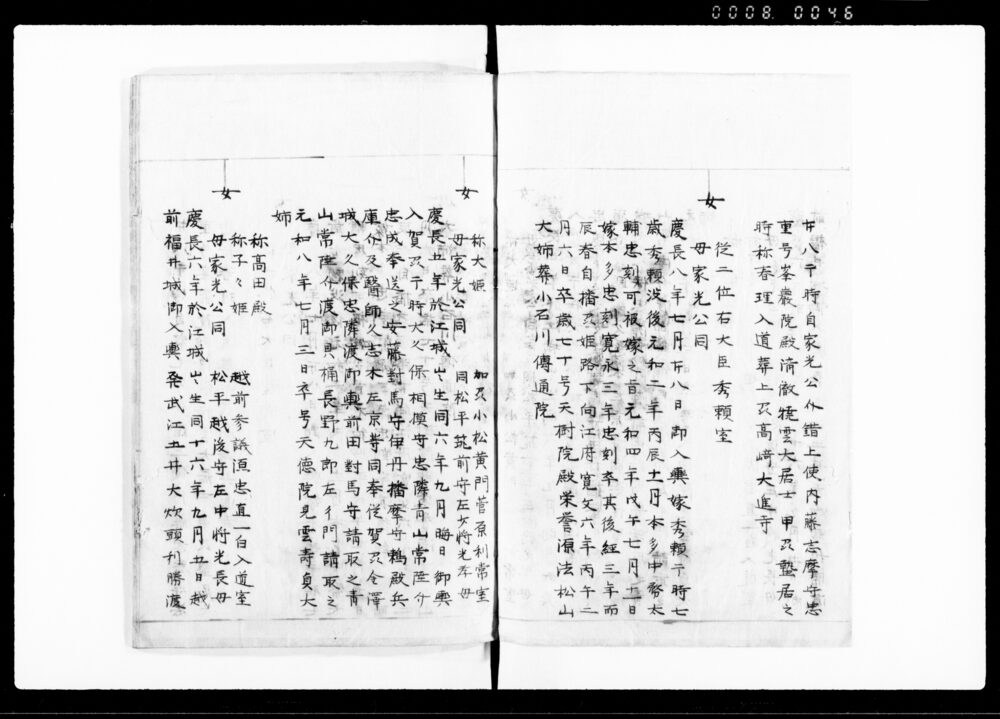 0008 0046
廿八于時自家光公御介錯上使内藤志摩守忠
重号峯巌院殿清徹暁雲大居士 甲州蟄居之
時称春理入道葬上州高﨑大進寺
女
従二位右大臣秀頼室
母家光公同
慶長八年七月廿八日御入輿嫁秀頼于時七
歳秀頼没後元和二年丙辰十一月本多中務太
輔忠刻可被嫁之旨元和四年戊午七月十一日
嫁本多忠刻寛永三年忠刻卒其後経三年而
辰春自播州姫路下向江府寛文六年丙午二
月六日卒歳七十号天樹院殿栄誉源法松山
大姉葬小石川傳通院
女
称大姫 加州小松黄門菅原利常室
母家光公同 同松平筑前守左少将光孝母
慶長五年於江城出生同六年九月晦日御輿
入賀州于時大久保相摸守忠隣青山常陸介
忠成奉送之安藤對馬守伊丹播摩守鵜殿兵
庫介及醫師久志本左京等同奉従賀州金澤
城大久保忠隣渡御輿前田對馬守請取之青
山常陸介渡御貝桶長野九郎左衛門請取之
元和八年七月三日卒号天徳院見雲壽貞大
姉
女
称高田殿 越前参議源忠直一白入道室
称子々姫
母家光公同 松平越後守左中将光長母
慶長六年於江城出生同十六年九月五日越
前福井城御入輿発武江土井大炊頭利勝渡